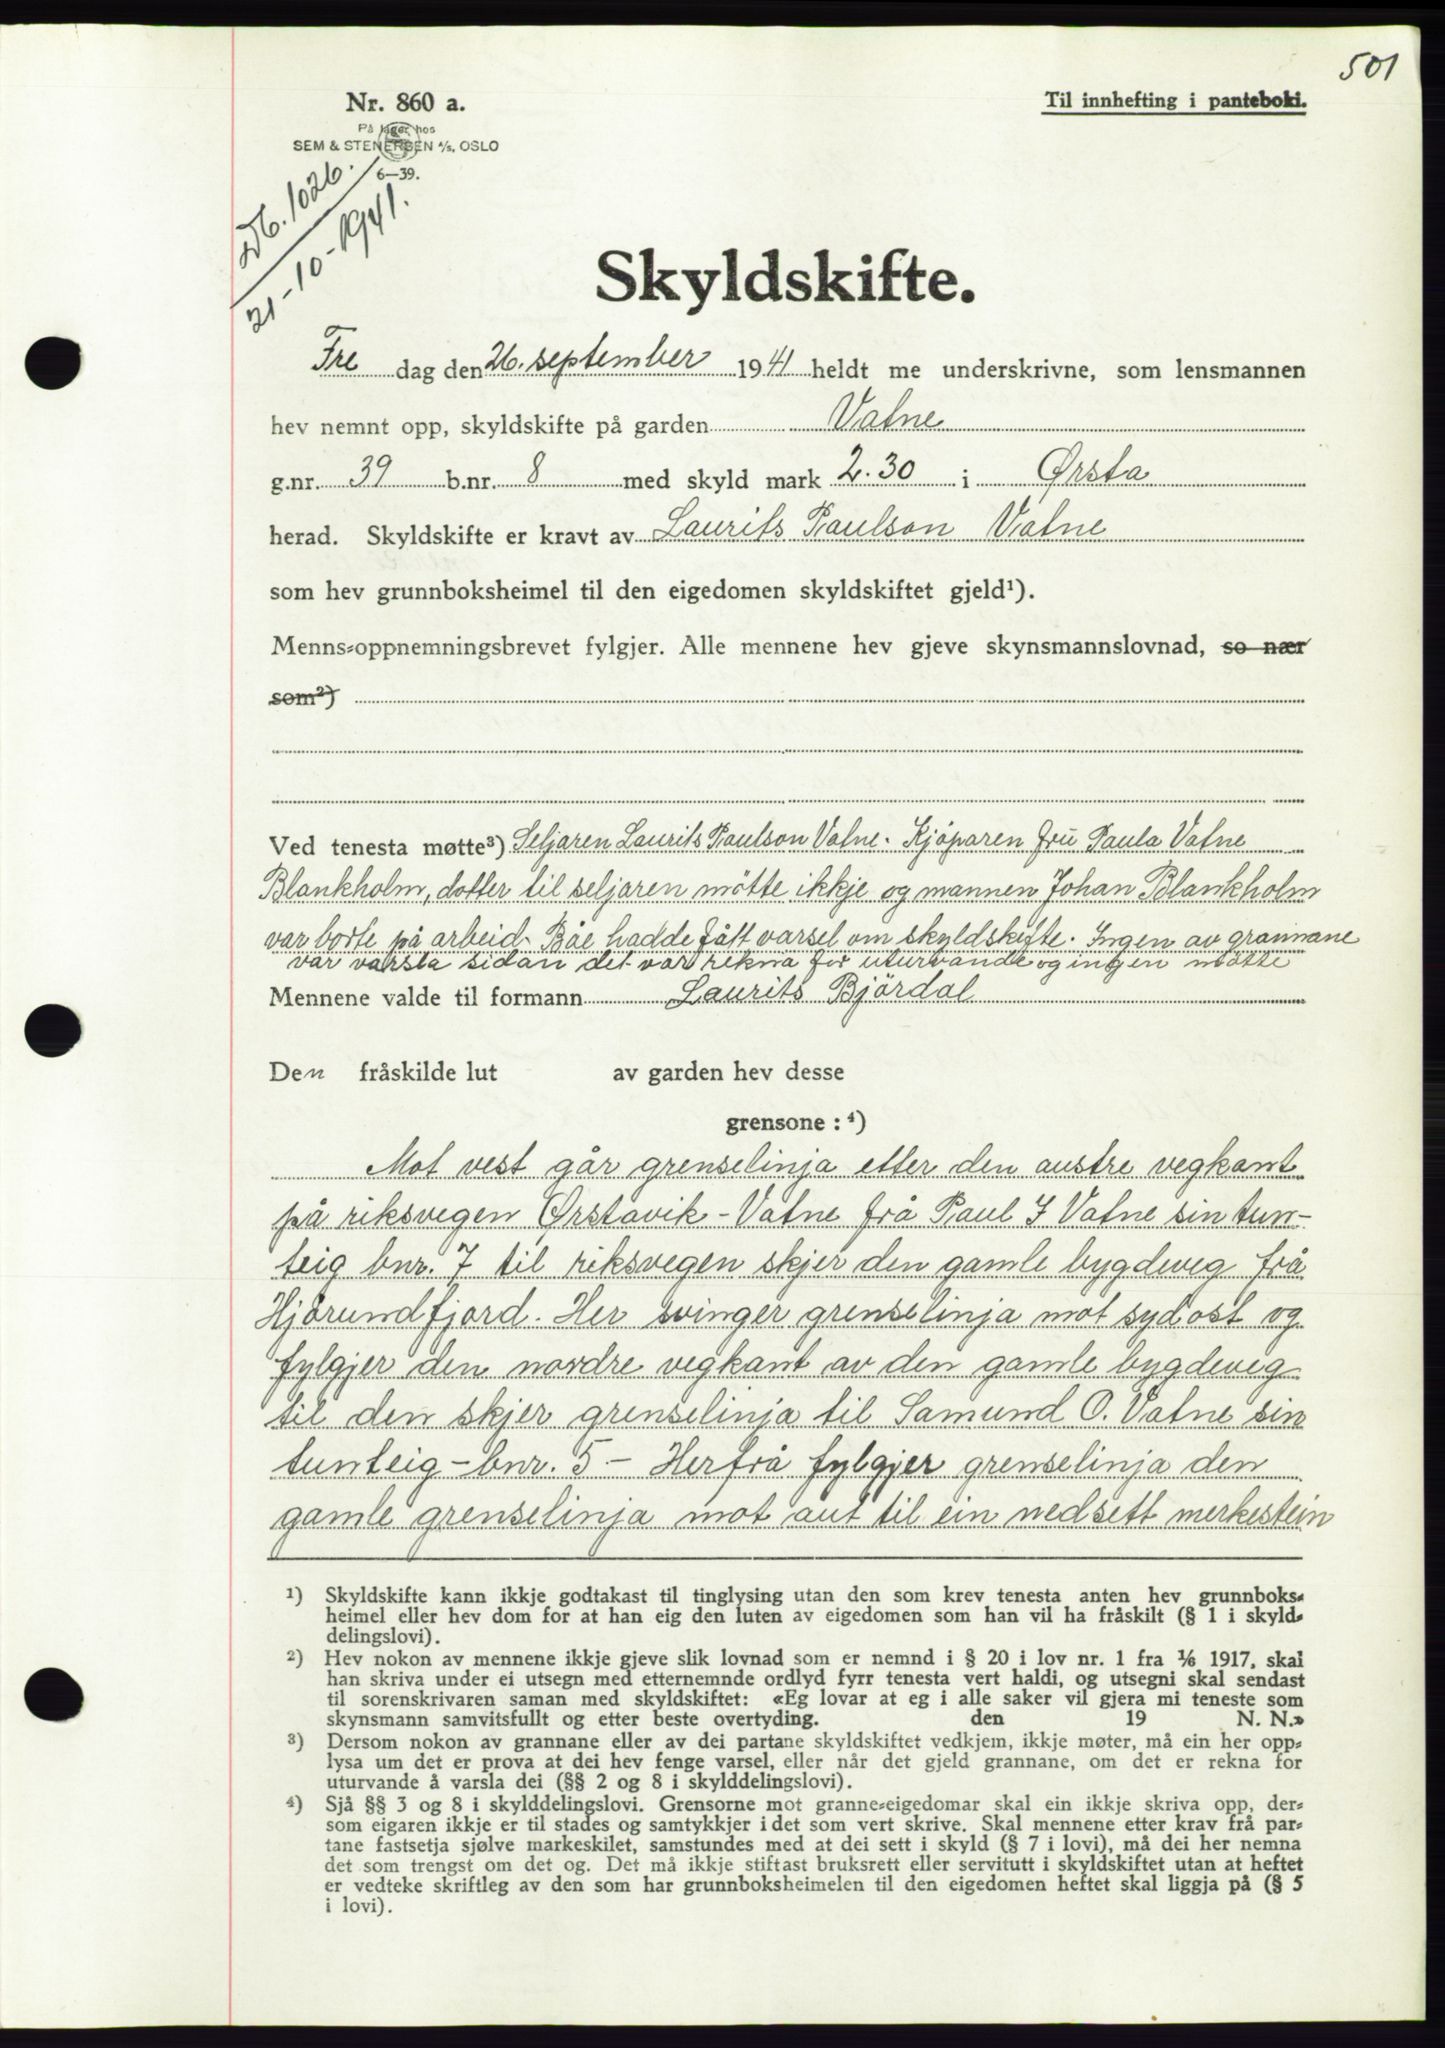 501
Nr. 860 a.
Til innhefting i panteboki.
På lager hos
SEM & STENERSEN A/S, OSLO
6—39.
Db. 1026.
21-10-1941.
Skyldskifte.
Fre dag den 26. september 1941 heldt me underskrivne, som lensmannen
hev nemnt opp, skyldskifte på garden Vatne
g.nr. 39 b.nr. 8 med skyld mark 2.30 i Ørsta
herad. Skyldskifte er kravt av Laurits Paulson Vatne
som hev grunnboksheimel til den eigedomen skyldskiftet gjeld¹).
Menns-oppnemningsbrevet fylgjer. Alle mennene hev gjeve skynsmannslovnad, so nær
som²)
Ved tenesta møtte³) Seljaren Laurits Paulson Vatne. Kjöparen fru Paula Vatne
Blankholm, dotter til seljaren mötte ikkje og mannen Johan Blankholm
var borte på arbeid. Båe hadde fått varsel om skyldskifte. Ingen av grannane
var varsla sidan det var rekna for uturvande og ingen mötte
Mennene valde til formann Laurits Björdal
Den fråskilde lut av garden hev desse
grensone : ⁴)
Mot vest går grenselinja etter den austre vegkant
på riksvegen Ørstavik - Vatne frå Paul J Vatne sin tun-
teig bnr. 7 til riksvegen skjer den gamle bygdeveg frå
Hjörundfjord. Her svinger grenselinja mot sydost og
fylgjer den nordre vegkant av den gamle bygdeveg
til den skjer grenselinja til Samund O. Vatne sin
tunteig - bnr. 5 - Herfrå fylgjer grenselinja den
gamle grenselinja mot aut til ein nedsett merkestein
¹) Skyldskifte kann ikkje godtakast til tinglysing utan den som krev tenesta anten hev grunnboks-
heimel eller hev dom for at han eig den luten av eigedomen som han vil ha fråskilt (§ 1 i skyld-
delingslovi).
²) Hev nokon av mennene ikkje gjeve slik lovnad som er nemnd i § 20 i lov nr. 1 fra 1/6 1917, skal
han skriva under ei utsegn med etternemnde ordlyd fyrr tenesta vert haldi, og utsegni skal sendast
til sorenskrivaren saman med skyldskiftet: «Eg lovar at eg i alle saker vil gjera mi teneste som
skynsmann samvitsfullt og etter beste overtyding. den 19 N. N.»
³) Dersom nokon av grannane eller av dei partane skyldskiftet vedkjem, ikkje møter, må ein her opp-
lysa um det er prova at dei hev fenge varsel, eller når det gjeld grannane, om det er rekna for
uturvande å varsla dei (§§ 2 og 8 i skylddelingslovi).
⁴) Sjå §§ 3 og 8 i skylddelingslovi. Grensorne mot granne-eigedomar skal ein ikkje skriva opp, der-
som eigaren ikkje er til stades og samtykkjer i det som vert skrive. Skal mennene etter krav frå par-
tane fastsetja sjølve markeskilet, samstundes med at dei sett i skyld (§ 7 i lovi), må dei her nemna
det som trengst om det og. Det må ikkje stiftast bruksrett eller servitutt i skyldskiftet utan at heftet
er vedteke skriftleg av den som har grunnboksheimelen til den eigedomen heftet skal liggja på (§ 5
i lovi).